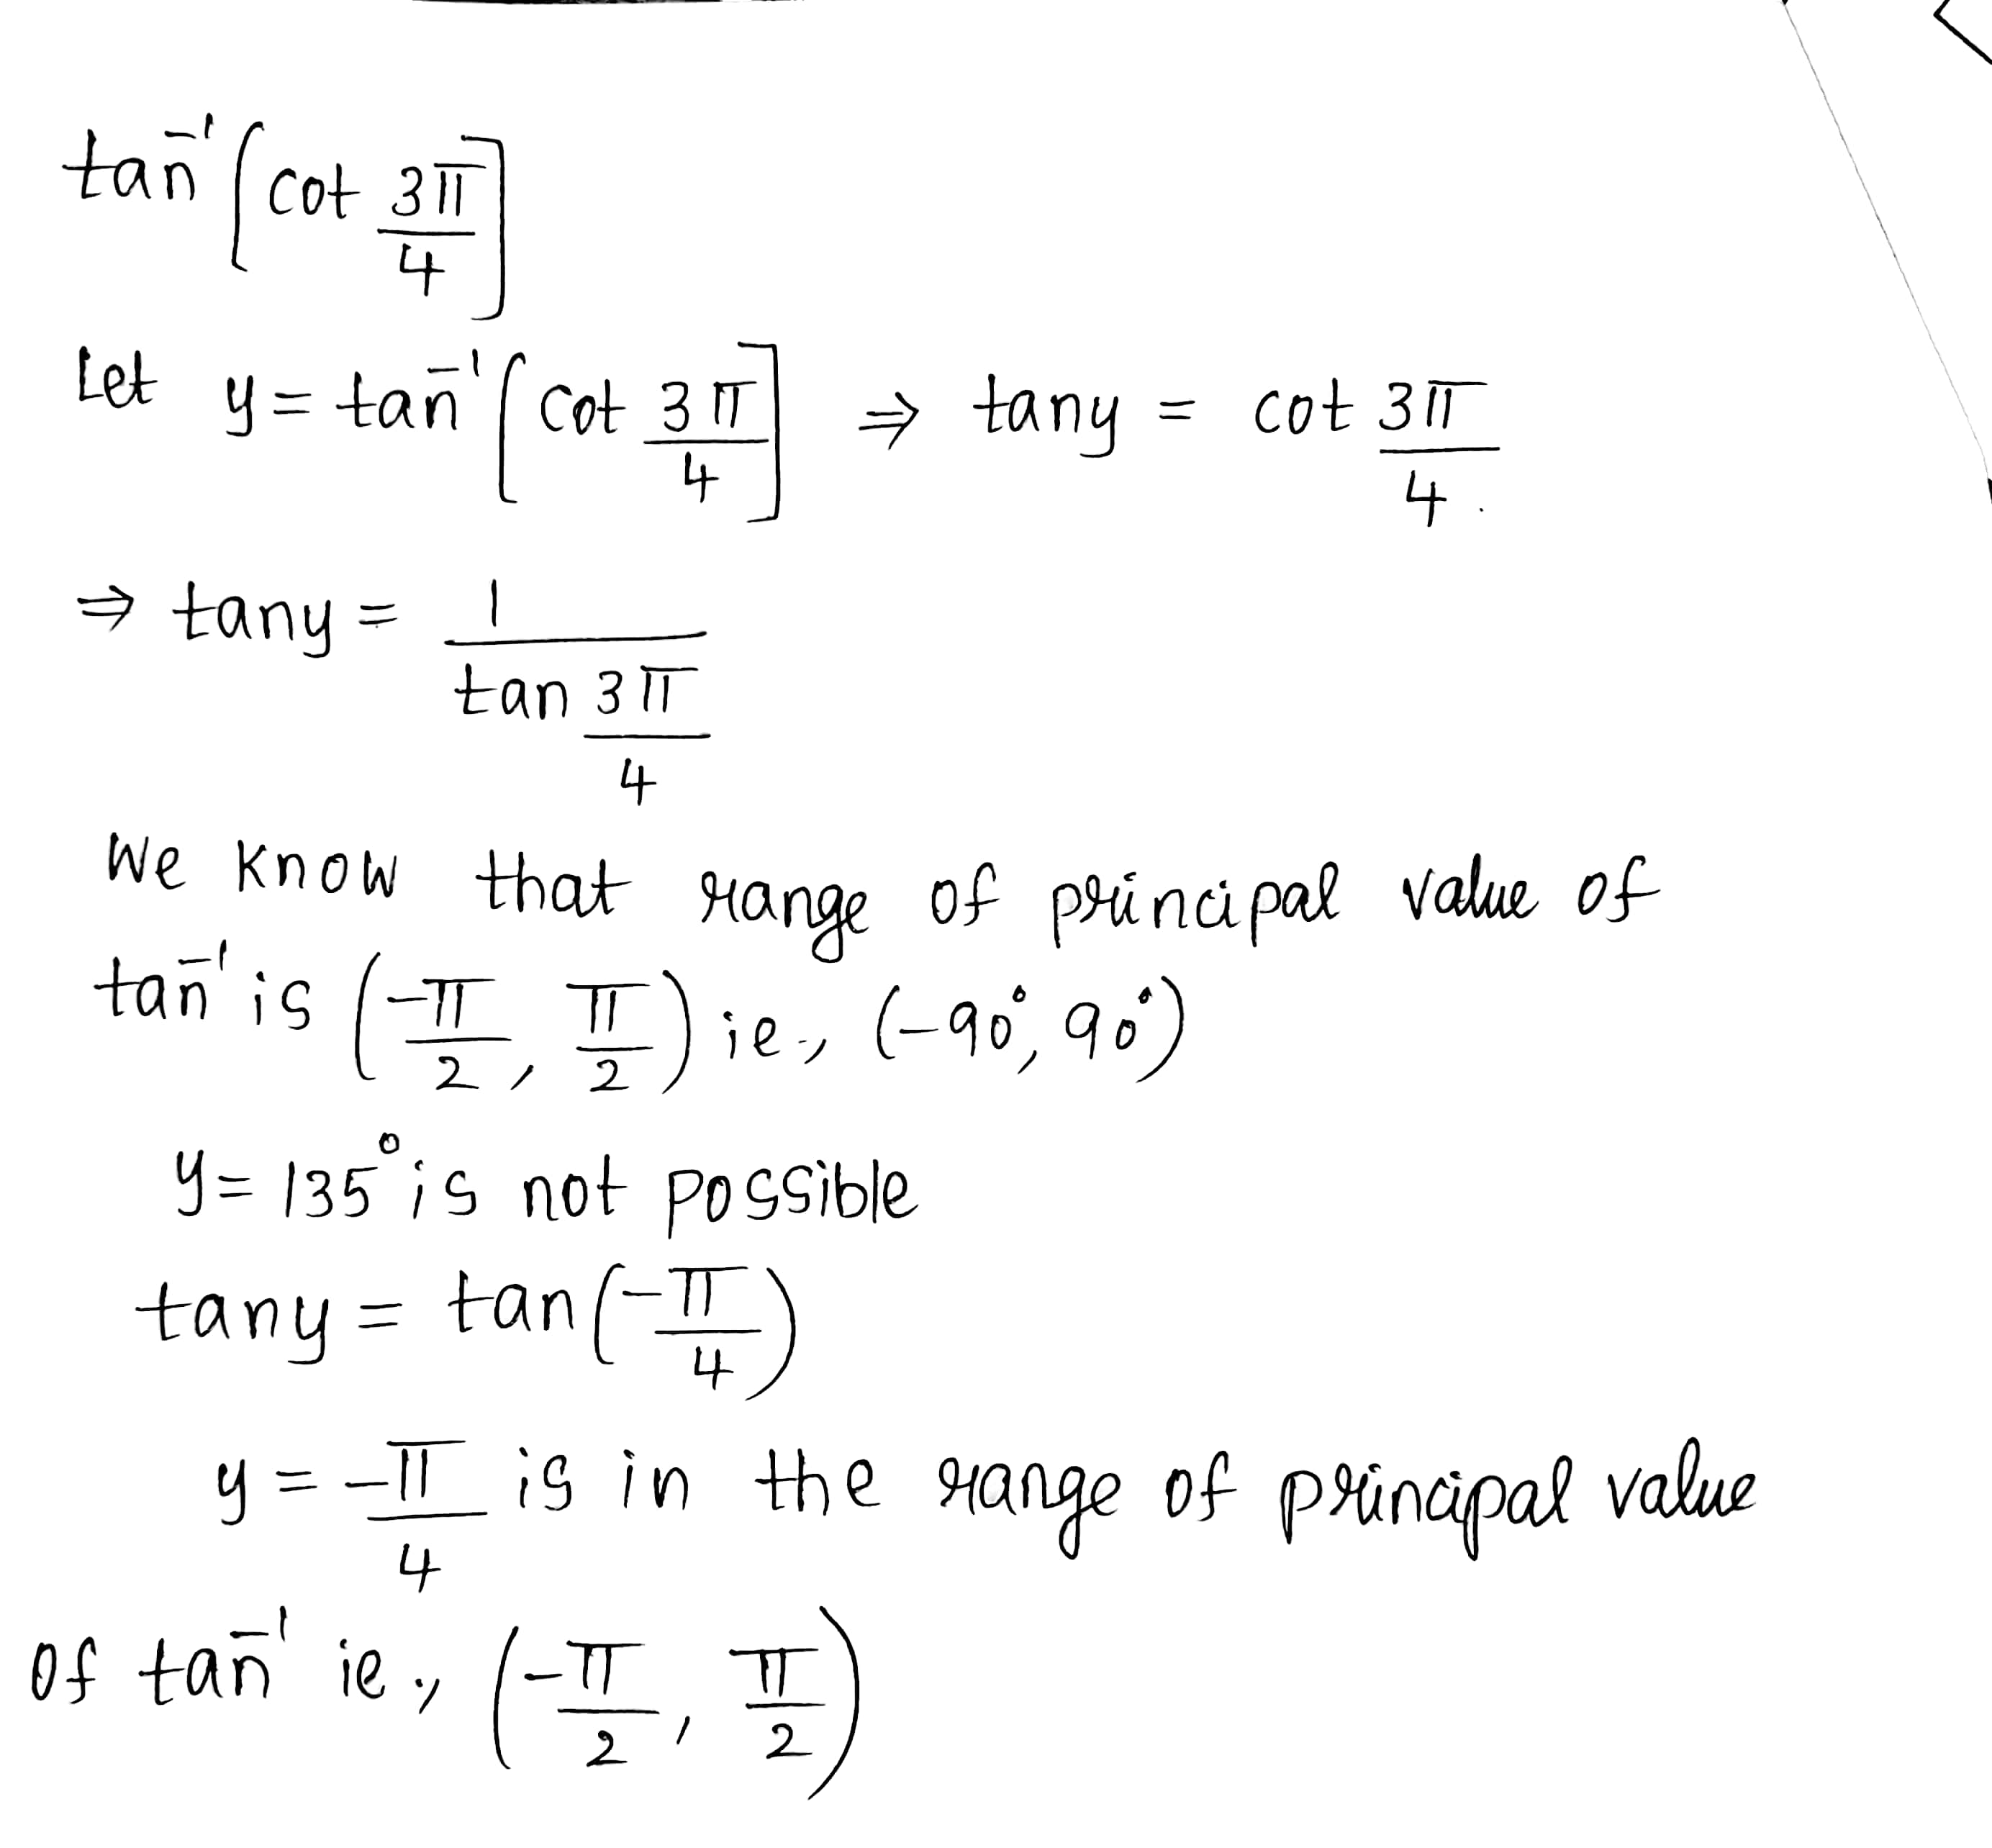 tan⁻¹[cot 3π/4]
Let y = tan⁻¹[cot 3π/4] ⇒ tany = cot 3π/4.
⇒ tany = 1/(tan 3π/4)
We know that range of principal value of
tan⁻¹ is (-π/2, π/2) ie., (-90°, 90°)
y = 135° is not possible
tany = tan(-π/4)
y = -π/4 is in the range of principal value
of tan⁻¹ ie., (-π/2, π/2)